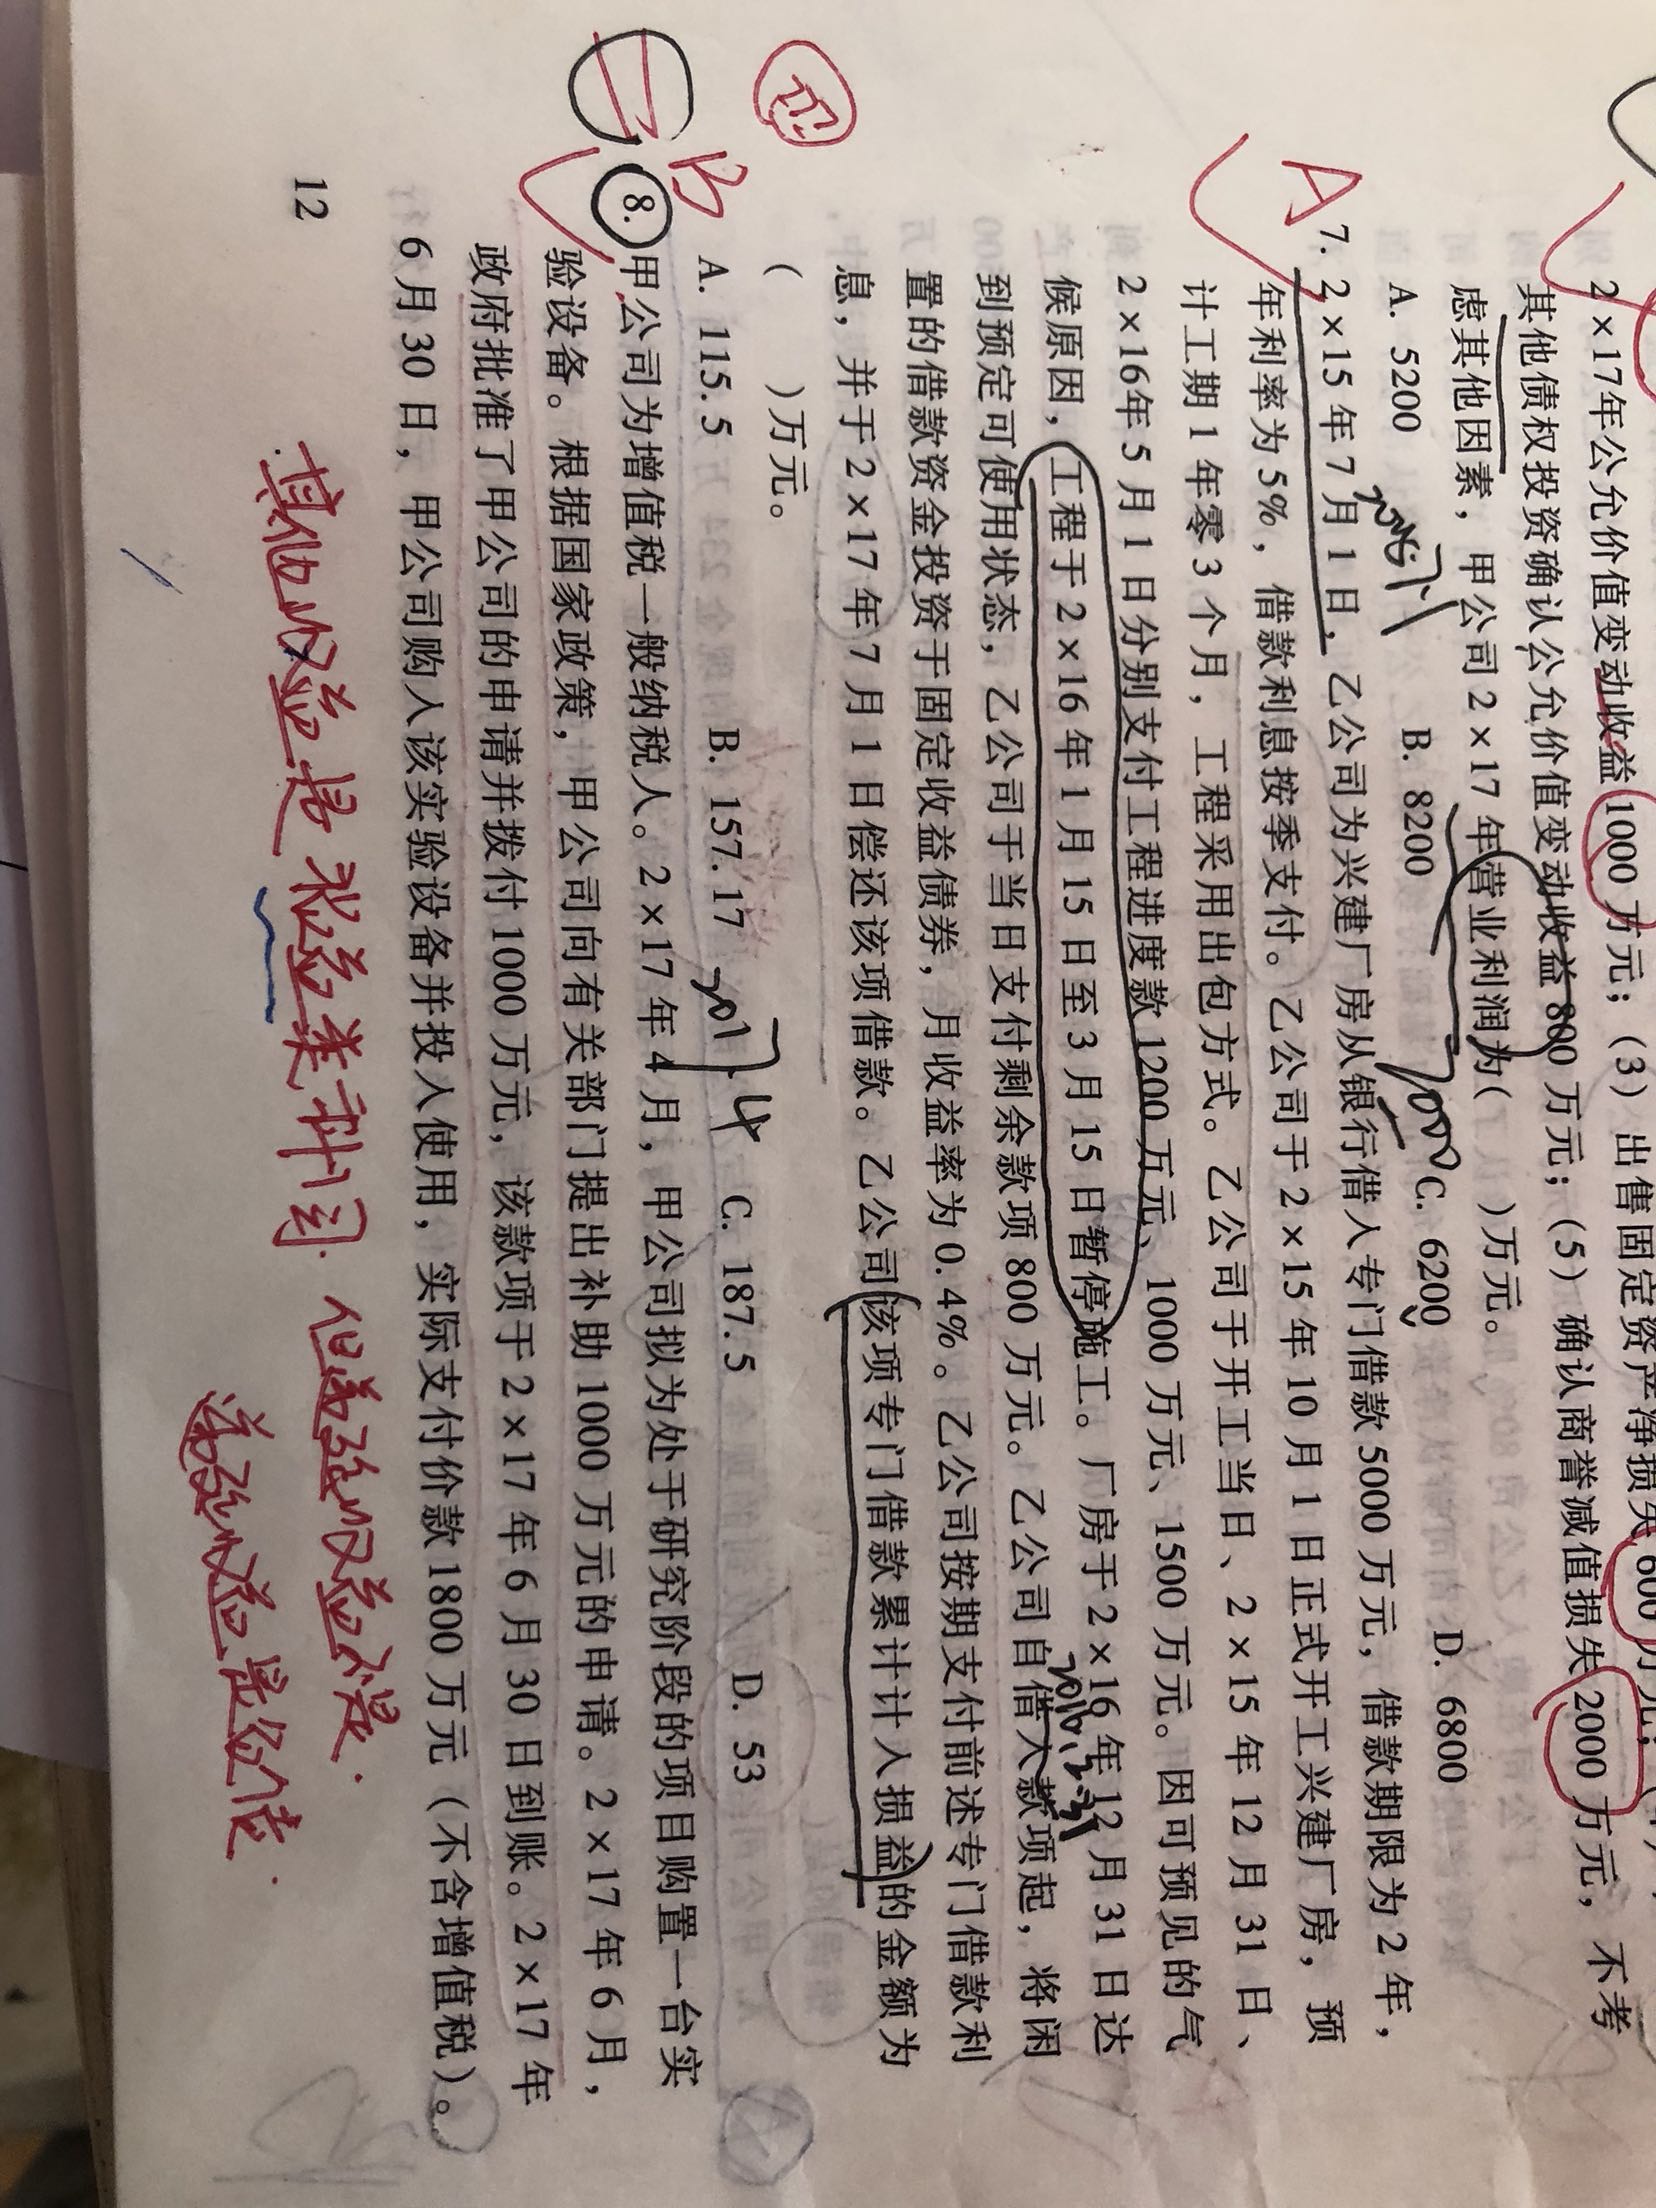 2×17年公允价值变动收益1000万元；（3）出售固定资产净损失600万元；
其他债权投资确认公允价值变动收益800万元；（5）确认商誉减值损失2000万元，不考
虑其他因素，甲公司2×17年营业利润为（ ）万元。
A. 5200 B. 8200 C. 6200 D. 6800
A
7. 2×15年7月1日，乙公司为兴建厂房从银行借入专门借款5000万元，借款期限为2年，
年利率为5%，借款利息按季支付。乙公司于2×15年10月1日正式开工兴建厂房，预
计工期1年零3个月，工程采用出包方式。乙公司于开工当日、2×15年12月31日、
2×16年5月1日分别支付工程进度款1200万元、1000万元、1500万元。因可预见的气
候原因，工程于2×16年1月15日至3月15日暂停施工。厂房于2×16年12月31日达
到预定可使用状态，乙公司于当日支付剩余款项800万元。乙公司自借入款项起，将闲
置的借款资金投资于固定收益债券，月收益率为0.4%。乙公司按期支付前述专门借款利
息，并于2×17年7月1日偿还该项借款。乙公司该项专门借款累计计入损益的金额为
（ ）万元。
A. 115.5 B. 157.17 C. 187.5 D. 53
B
8. 甲公司为增值税一般纳税人。2×17年4月，甲公司拟为处于研究阶段的项目购置一台实
验设备。根据国家政策，甲公司向有关部门提出补助1000万元的申请。2×17年6月，
政府批准了甲公司的申请并拨付1000万元，该款项于2×17年6月30日到账。2×17年
6月30日，甲公司购入该实验设备并投入使用，实际支付价款1800万元（不含增值税）。
12
其他收益是损益类科目. 但递延收益不是.
递延收益是负债.